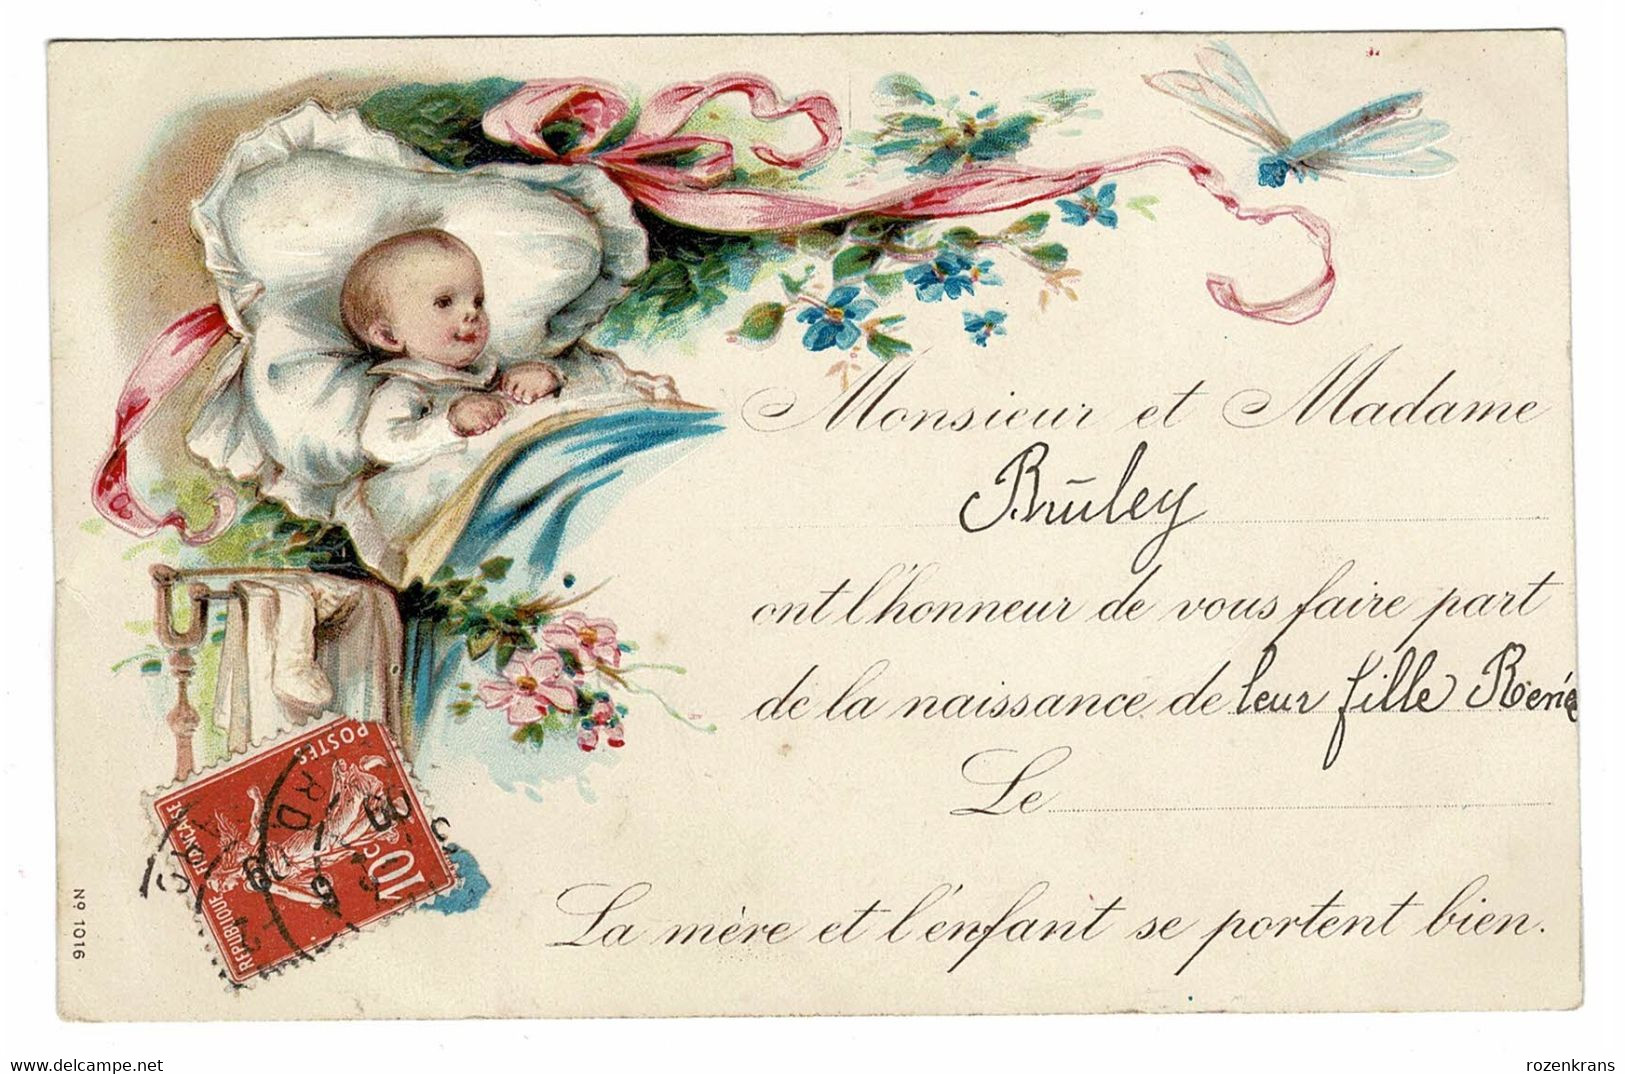 Monsieur et Madame
Bruley
ont l'honneur de vous faire part
de la naissance de leur fille Renée
Le
La mère et l'enfant se portent bien.
Nº 1016
POSTES
10 c
RÉPUBLIQUE FRANÇAISE
09
website www.delcampe.net
rozenkrans